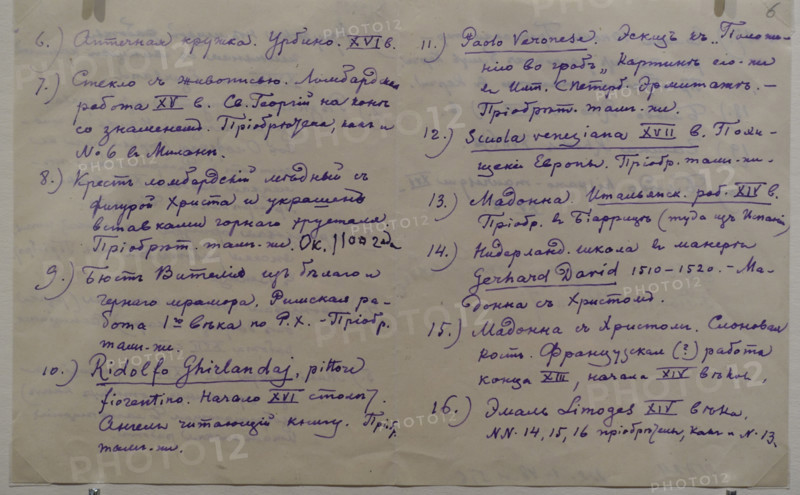 6
6.) Аптечная кружка. Урбино. XVI в.
7.) Стекло съ живописью. Ломбардская
работа XV в. Св. Георгій на конѣ
со знаменемъ. Пріобрѣтена, какъ и
№ 6 въ Миланѣ.
8.) Крестъ ломбардскій мѣдный съ
фигурой Христа и украшенъ
вставками горнаго хрусталя
Пріобрѣт. тамъ-же. Ок. 1100 года
9.) Бюстъ Вителія изъ бѣлаго и
чернаго мрамора. Римская ра-
бота 1го вѣка по Р. Х. - Пріобр.
тамъ-же.
10.) Ridolfo Ghirlandaj, pittore
fiorentino. Начало XVI столѣт.
Ангелъ читающій книгу. Пріобр.
тамъ-же.
11.) Paolo Veronese. Эскизъ къ "Положе-
нію во гробъ", картинѣ его-же
въ Имп. С Петерб. Эрмитажѣ. -
Пріобрѣт. тамъ-же.
12.) Scuola veneziana XVII в. Похи-
щеніе Европы. Пріобр. тамъ-же.
13.) Мадонна. Итальянск. раб. XIV в.
Пріобр. въ Біаррицѣ (туда изъ Испаніи)
14.) Нидерланд. школа въ манерѣ
Gerhard David 1510-1520. - Ма-
донна съ Христомъ.
15.) Мадонна съ Христомъ. Слоновая
кость. Французская (?) работа
конца XIII, начала XIV вѣковъ.
16.) Эмаль Limoges XIV вѣка.
NN. 14, 15, 16 пріобрѣтены, какъ и N. 13.